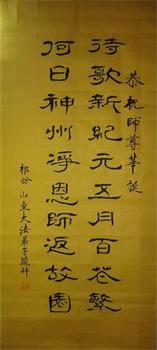 恭祝師尊華誕
待歌新紀元五月百花繫
何日神州淨恩師返故園
祁盼 山東大法弟子跪拜